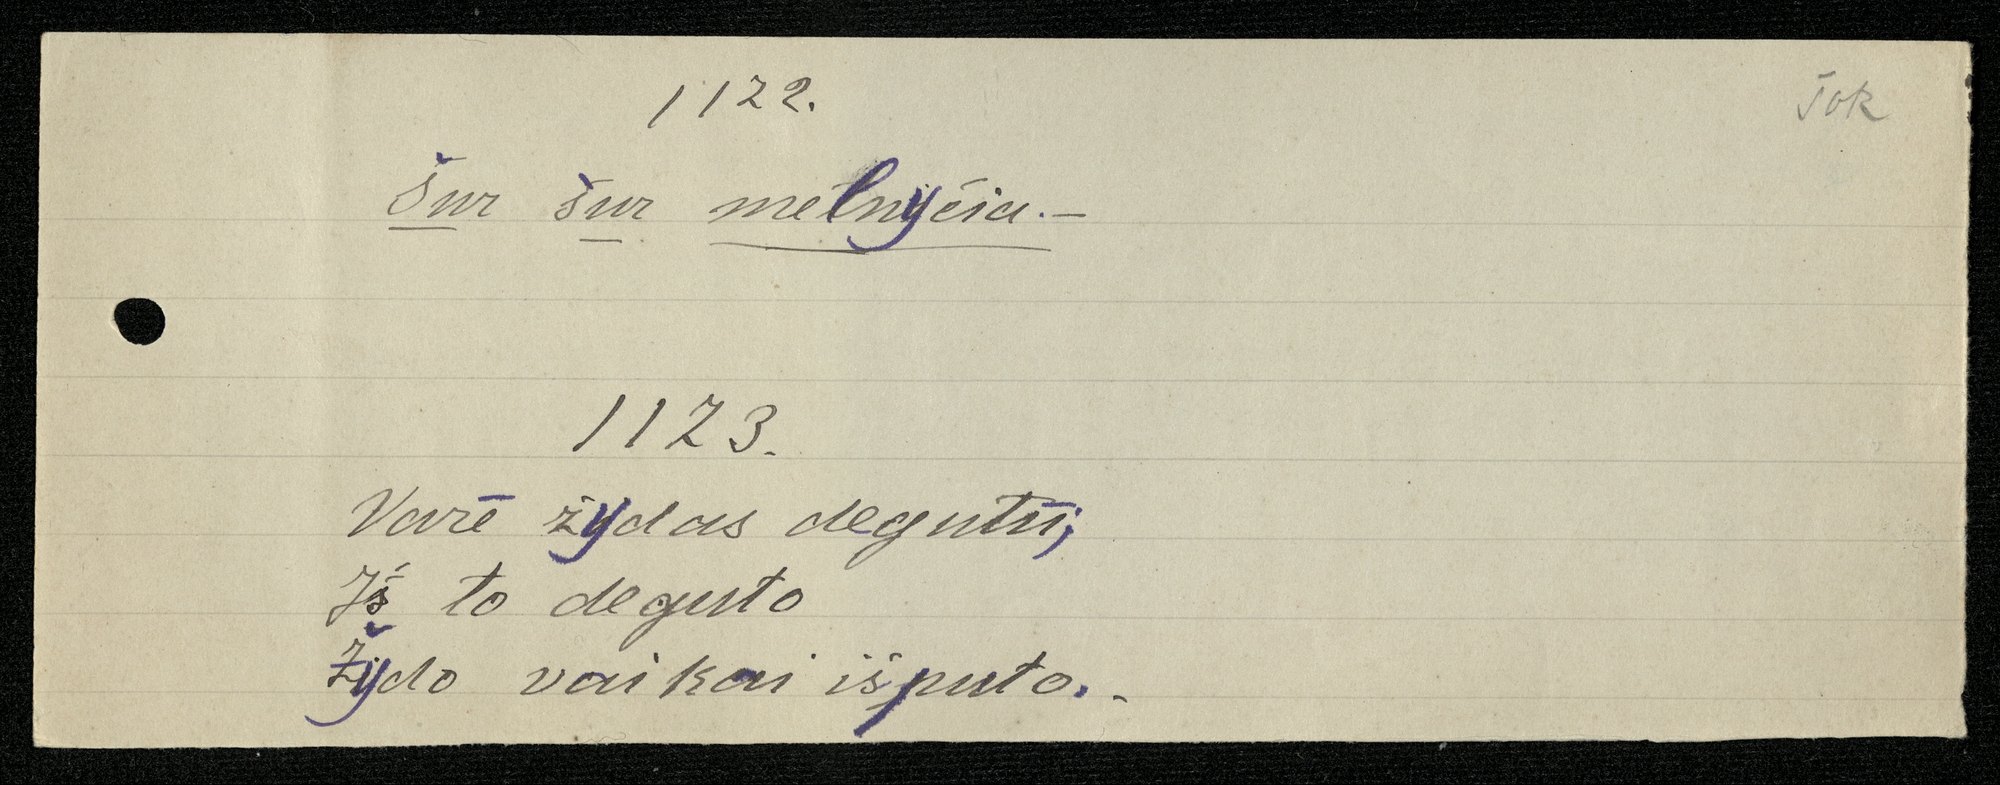 1122.
Šok
Šur šur melnyčia.—
1123.
Varē žydas degutū;
Iš to deguto
Žydo vaikai išputo.-